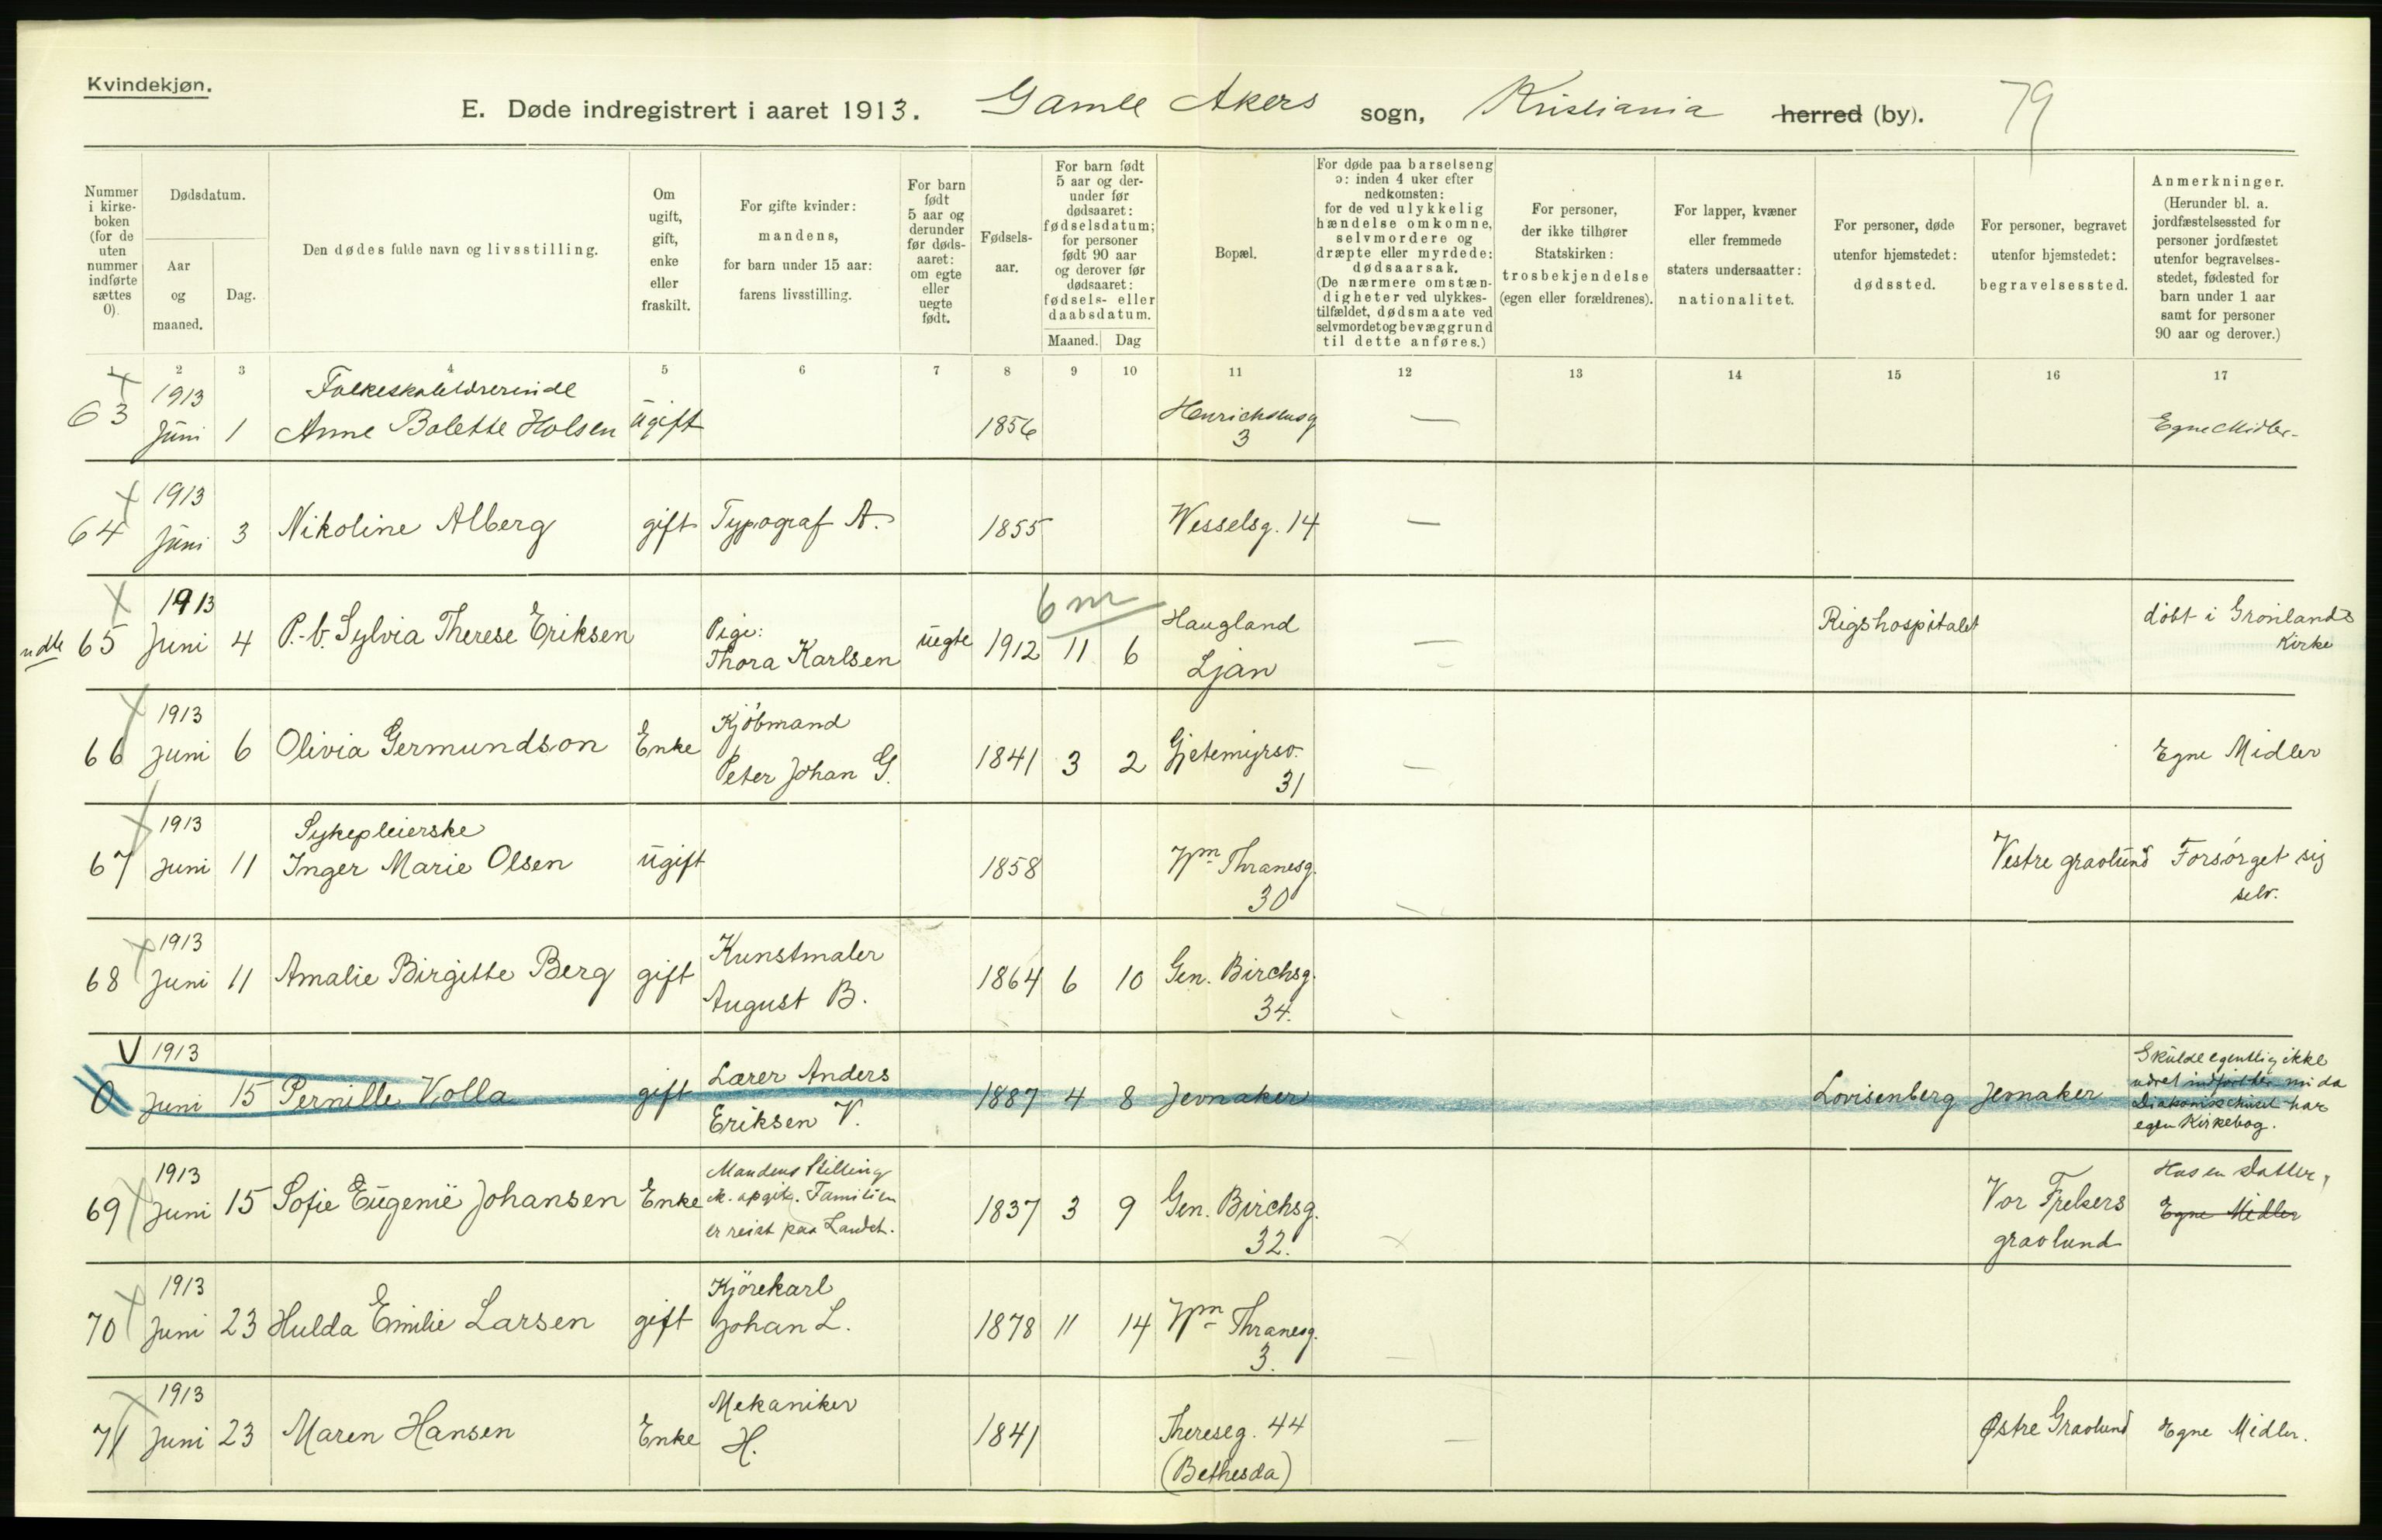 Kvindekjøn.
E. Døde indregistrert i aaret 1913. Gamle Akers sogn, Kristiania herred (by). 79
Nummer i kirkeboken (for de uten nummer indførte sættes 0).
Dødsdatum.
Aar og maaned.
Dag.
Den dødes fulde navn og livsstilling.
Om ugift, gift, enke eller fraskilt.
For gifte kvinder: mandens, for barn under 15 aar: farens livsstilling.
For barn født 5 aar og derunder før dødsaaret: om egte eller uegte født.
Fødselsaar.
For barn født 5 aar og derunder før dødsaaret: fødselsdatum; for personer født 90 aar og derover før dødsaaret: fødsels- eller daabsdatum.
Maaned. Dag
Bopæl.
For døde paa barselseng ɔ: inden 4 uker efter nedkomsten: for de ved ulykkelig hændelse omkomne, selvmordere og dræpte eller myrdede: dødsaarsak. (De nærmere omstændigheter ved ulykkestilfældet, dødsmaate ved selvmordet og bevæggrund til dette anføres.)
For personer, der ikke tilhører Statskirken: trosbekjendelse (egen eller forældrenes).
For lapper, kvæner eller fremmede staters undersaatter: nationalitet.
For personer, døde utenfor hjemstedet: dødssted.
For personer, begravet utenfor hjemstedet: begravelsessted.
Anmerkninger. (Herunder bl. a. jordfæstelsessted for personer jordfæstet utenfor begravelsesstedet, fødested for barn under 1 aar samt for personer 90 aar og derover.)
1 2 3 4 5 6 7 8 9 10 11 12 13 14 15 16 17
1913 Folkeskolelærerinde
63 Juni 1 Anne Bolette Holsen ugift 1856 Henrichsensg 3 — Egne Midler
1913
64 Juni 3 Nikoline Alberg gift Typograf A. 1855 Wesselsg. 14 —
1913 6 m
udb 65 Juni 4 P.-b. Sylvia Therese Eriksen Pige: Thora Karlsen uegte 1912 11 6 Haugland Ljan — Rigshospitalet døbt i Grønlands Kirke
1913
66 Juni 6 Olivia Germundson Enke Kjøbmand Peter Johan G. 1841 3 2 Gjetemyrsv. 31 — Egne Midler
1913 Sykepleierske
67 Juni 11 Inger Marie Olsen ugift 1858 Wm Thranesg. 30 Vestre gravlund Forsørget sig selv.
1913
68 Juni 11 Amalie Birgitte Berg gift Kunstmaler August B. 1864 6 10 Gen. Birchsg. 34.
V 1913
0 Juni 15 Pernille Volla gift Lærer Anders Eriksen V. 1887 4 8 Jevnaker Lovisenberg Jevnaker Skulde egentlig ikke været indført her da Diakonissehuset har egen Kirkebog.
1913
69 Juni 15 Sofie Eugenie Johansen Enke Mandens Stilling ik. opgit. Familien er reist paa Landet. 1837 3 9 Gen. Birchsg. 32. Vor Frelsers gravlund Hos en Datter, Egne Midler
1913
70 Juni 23 Hulda Emilie Larsen gift Kjörekarl Johan L. 1878 11 14 Wm Thranesg. 3.
1913
71 Juni 23 Maren Hansen Enke Mekaniker H. 1841 Thereseg. 44 (Bethesda) — Østre Gravlund Egne Midler.